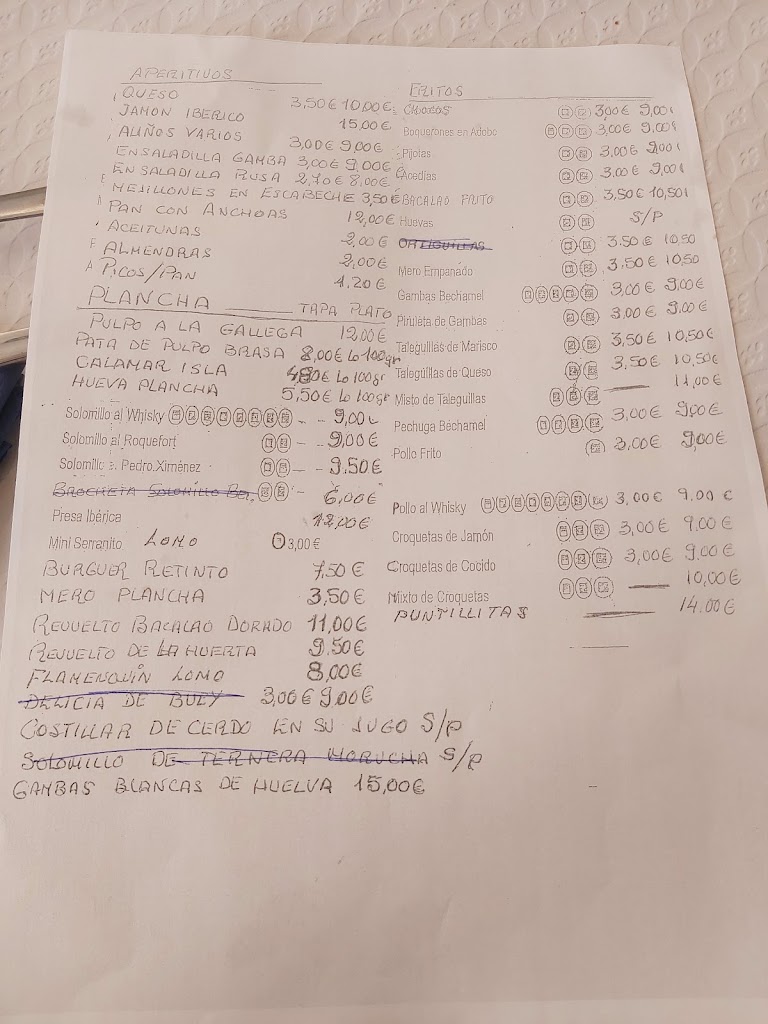 APERITIVOS
QUESO 3,50€ 10,00€
JAMON IBERICO 15,00€
ALIÑOS VARIOS 3,00€ 9,00€
ENSALADILLA GAMBA 3,00€ 9,00€
ENSALADILLA RUSA 2,70€ 8,00€
MEJILLONES EN ESCABECHE 3,50€
PAN CON ANCHOAS 12,00€
ACEITUNAS 2,00€
ALMENDRAS 2,00€
PICOS/PAN 1.20€
PLANCHA TAPA PLATO
PULPO A LA GALLEGA 12,00€
PATA DE PULPO BRASA 8,00€ Lo 100gr
CALAMAR ISLA 4,80€ Lo 100gr
HUEVA PLANCHA 5,50€ Lo 100gr
Solomillo al Whisky -- 9,00€
Solomillo al Roquefort -- 9,00€
Solomillo a Pedro Ximénez -- 9.50€
BROCHETA SOLOMILLO -- 6,00€
Presa Ibérica 12,00€
Mini Serranito LOMO 3,00€
BURGUER RETINTO 7,50€
MERO PLANCHA 3,50€
REVUELTO BACALAO DORADO 11,00€
REVUELTO DE LA HUERTA 9.50€
FLAMENQUÍN LOMO 8,00€
DELICIA DE BUEY 3,00€ 9,00€
COSTILLAR DE CERDO EN SU JUGO S/P
SOLOMILLO DE TERNERA MORUCHA S/P
GAMBAS BLANCAS DE HUELVA 15,00€
FRITOS
CHOCOS 3,00€ 9,00€
Boquerones en Adobo 3,00€ 9,00€
Pijotas 3,00€ 9,00€
Acedías 3,00€ 9,00€
BACALAO FRITO 3,50€ 10,50€
Huevas S/P
ORTIGUILLAS 3.50€ 10,50
Mero Empanado 3.50€ 10,50
Gambas Bechamel 3,00€ 9,00€
Piruleta de Gambas 3,00€ 9,00€
Taleguillas de Marisco 3,50€ 10,50€
Taleguillas de Queso 3,50€ 10,50€
Misto de Taleguillas 11,00€
Pechuga Bechamel 3,00€ 9,00€
Pollo Frito 3,00€ 9,00€
Pollo al Whisky 3,00€ 9,00€
Croquetas de Jamón 3,00€ 9,00€
Croquetas de Cocido 3,00€ 9.00€
Mixto de Croquetas 10,00€
PUNTILLITAS 14.00€